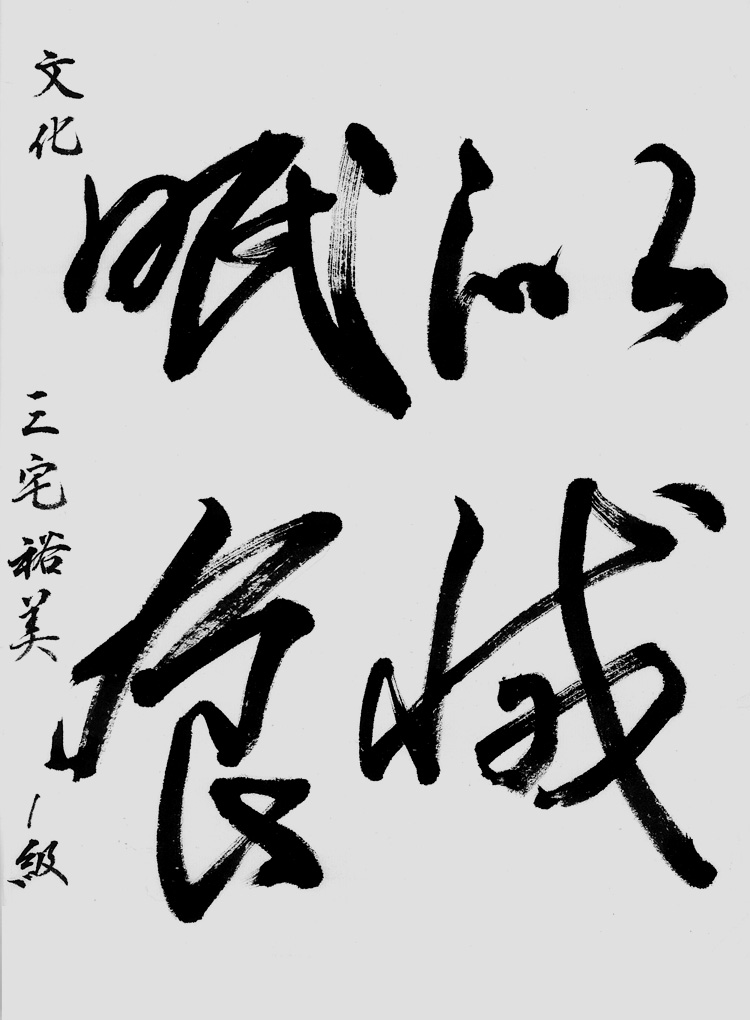 以
眠食
文化 三宅裕美 1級